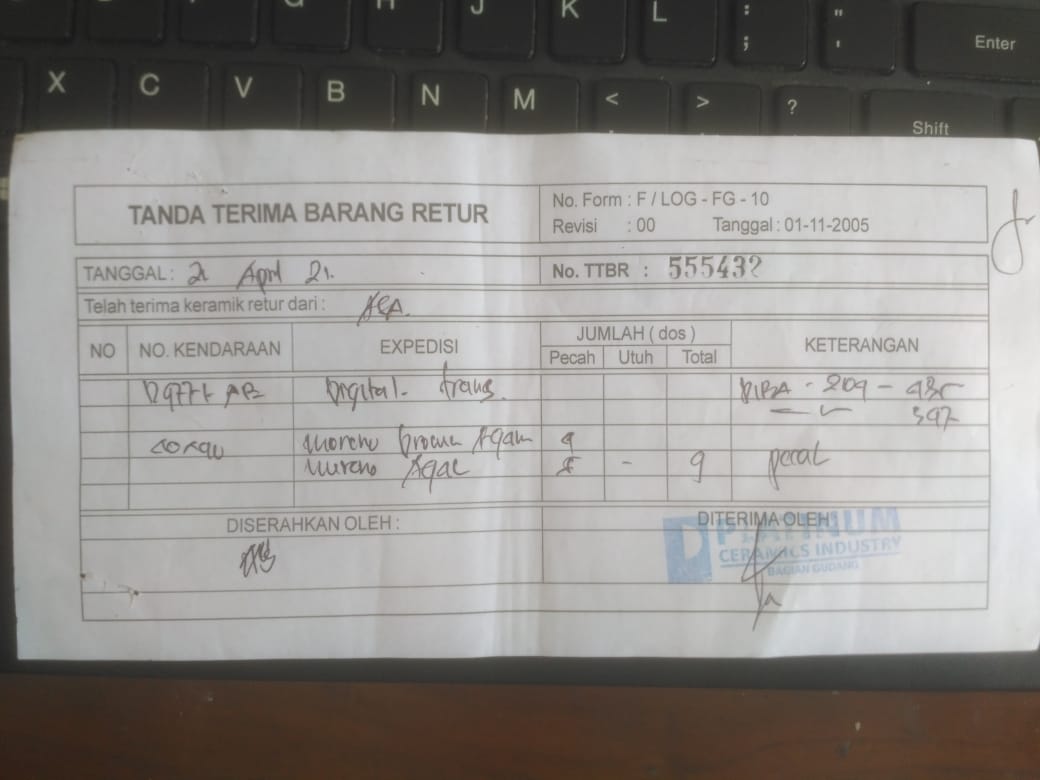 G H J K L : ; " ' Enter
X C V B N M < , > . ? Shift
TANDA TERIMA BARANG RETUR
No. Form : F / LOG - FG - 10
Revisi : 00 Tanggal : 01-11-2005
TANGGAL : 21 April 21.
No. TTBR : 555432
Telah terima keramik retur dari :
NO NO. KENDARAAN EXPEDISI JUMLAH ( dos ) KETERANGAN
Pecah Utuh Total
Digital trans.
- 209 -
397
Moreno Brown Agam 9
Moreno - 9 pecah
DISERAHKAN OLEH :
DITERIMA OLEH :
PLATINUM
CERAMICS INDUSTRY
BAGIAN GUDANG